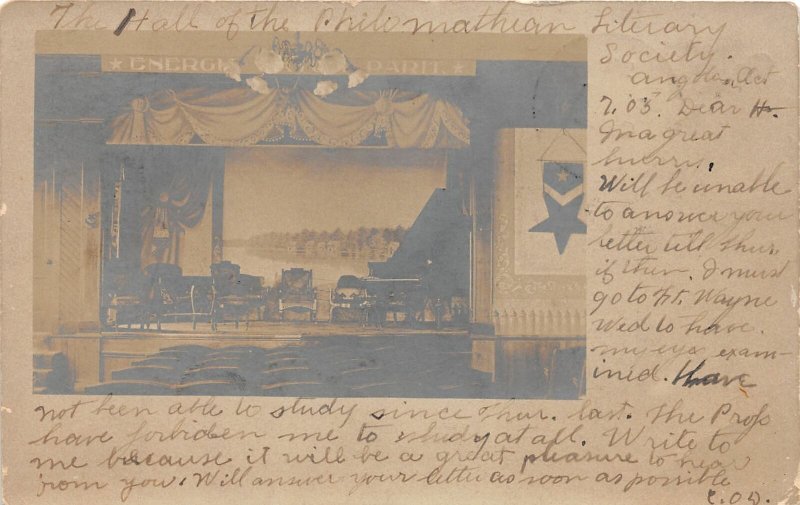 The Hall of the Philomathean Literary
Society.
★ ENERGI PARIT. ★
Angola, Oct
7, 03. Dear H-
Im a great
hurry.
Will be unable
to answer your
letter till Thur.
if then. I must
go to Ft. Wayne
Wed to have
my eyes exam-
ined. Have
not been able to study since Thur. last. The Profs
have forbidden me to study at all. Write to
me because it will be a great pleasure to hear
from you. Will answer your letter as soon as possible